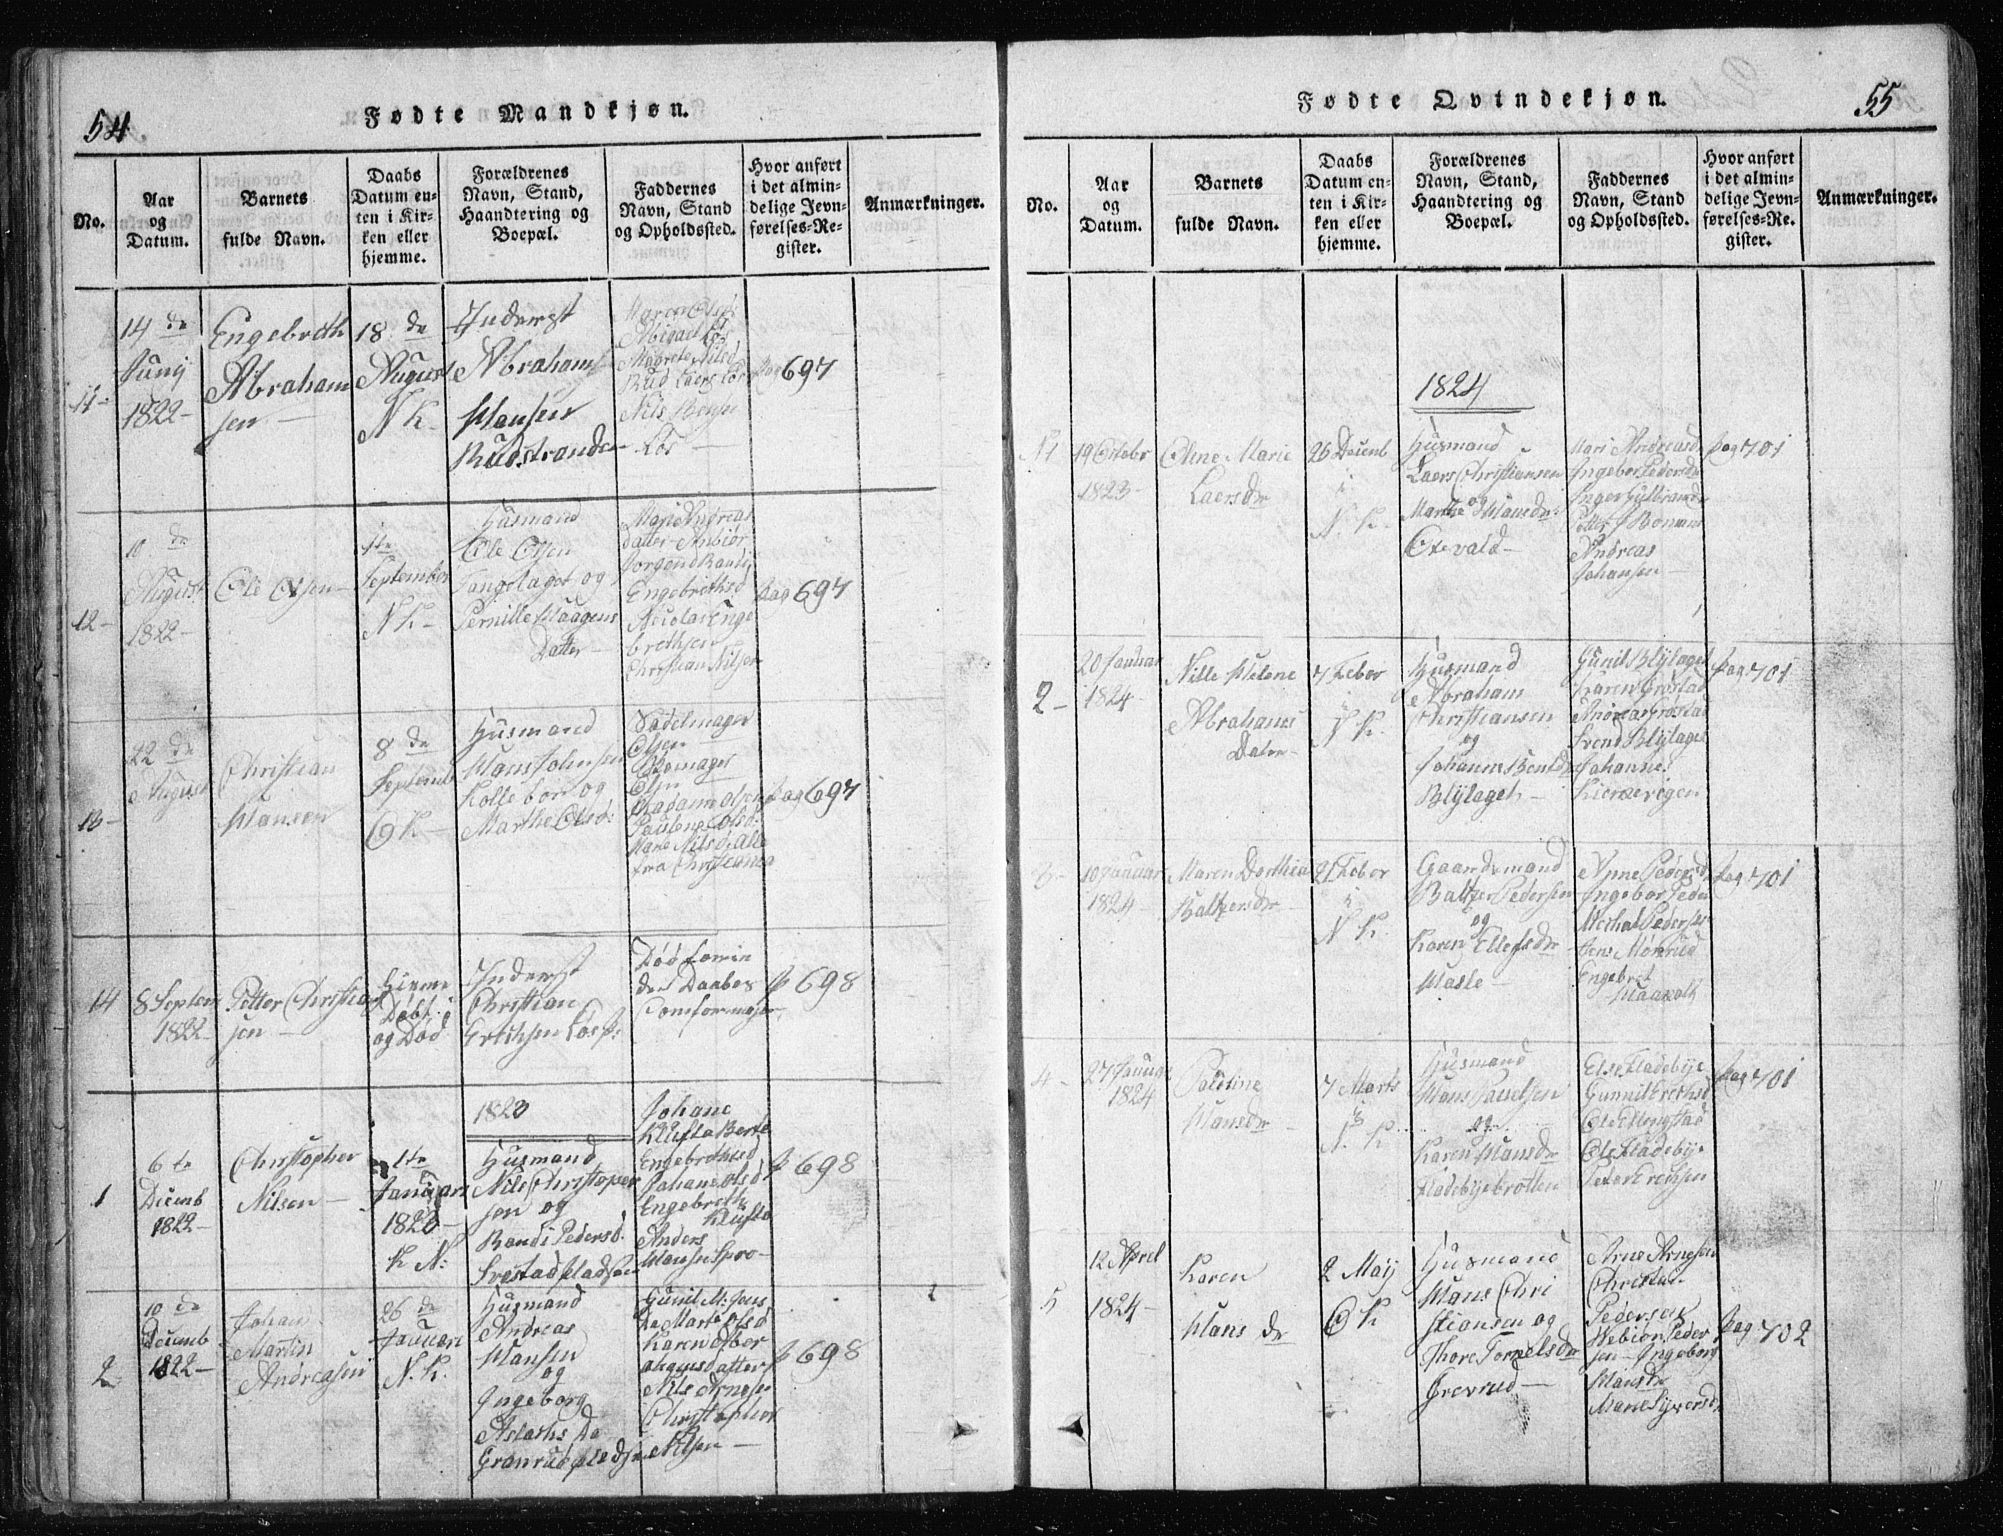 54
Fødte Mandkjøn.
No.
Aar
og
Datum.
Barnets
fulde Navn.
Daabs
Datum en-
ten i Kir-
ken eller
hjemme.
Forældrenes
Navn, Stand,
Haandtering og
Boepæl.
Faddernes
Navn, Stand
og Opholdssted.
Hvor anført
i det almin-
delige Jevn-
førelses-Re-
gister.
Anmærkninger.
14 de
Juny
1822-
Engebreth
Abraham
sen
18 de
August
N K-
Inderst
Abraham
Hansen
Rudstranden
Maren Olsd
Abigael
Magrete Nilsd
Rud Laers
Nils
Pag 697
12-
10 de
August
1822-
Ole Olsen-
1te
September
N K-
Husmand
Ole Olsen
Tangelaget og
Pernille Haagens
Datter-
Mari Andreas
datter
Jorgen
Engebrethsd
Nicolai Enge
brethsen
Christian Nilsen
Pag 697
13-
22 de
August
Christian
Hansen
8 de
Septemb
O K-
Husmand
Hans Johnsen
Kolle born og
Marthe Olsd:
Sadelmager
Olsen
Olsen
Madame Olsen
Pauline Olsd:
Nilsd, alle
fra Christiania
Pag 697
14
8 Septem
1822-
Petter Christian
sen-
Hiemme
Døbt
og Død
Inderst
Christian
Erichsen
Død forin
den Daabes
Comfermasion
P 698
1823
1
6 te
Decemb
1822-
Christopher
Nilsen-
1te
Januar
1823-
K N:
Husmand
Nils Christopher
sen og
Randi Pedersd.
Johane
Klufta Berte
Engebrethsd
Johane Olsd
Engebreth
Klufta
Anders
Hansen
P 698
2
10 de
Decemb
1822-
Johan
Martin
Andreasen
26 de
Januari
N. K.
Husmand
Andreas
Hansen
og
Ingeborg
Aslachs Da
Granrud
Gunil
Karen
Nils Arnesen
Christopher
Nilsen-
P 698
55
Fødte Qvindekjøn.
No.
Aar
og
Datum.
Barnets
fulde Navn.
Daabs
Datum en-
ten i Kir-
ken eller
hjemme.
Forældrenes
Navn, Stand,
Haandtering og
Boepæl.
Faddernes
Navn, Stand
og Opholdssted.
Hvor anført
i det almin-
delige Jevn-
førelses-Re-
gister.
Anmærkninger.
1824
19 Octobr
1823-
Oline Marie
Laersdr
26 Decemb
i
N. K.
Husmand
Laers Christiansen
og
Marthe Hansdr.
Oxevald-
Mari Andreasd
Ingebor Pedersd
Inger Gulbrands
Petter
Andreas
Johansen-
Pag 701
2-
20 Januar
1824-
Nille Helene
Abrahams
Dater-
7 Febor
i
N K.
Husmand
Abraham
Christiansen
og
Johanne Bentsdr
Blylaget-
Gunil Blylaget
Karen Grøstad
Andreas Grøstad
Svend Blylaget
Johanne
Kierrevigen
Pag 701
3-
10 Januar
1824-
Maren Dorthia
Baltzersdr
21 Febor
i
N K.
Gaardemand
Baltzer Pedersen
og
Karen Ellefsdr
Hasle-
Anne Pedersd
Ingebor Peder
Michal Pedersen
Jens
Engebret
Pag 701
4-
27 Januar
1824
Paoline
Hansdr
7 Marts
i
N. K
Husmand
Hans Paoelsen
og
Karen Hansdr
Fladebyebrotten
Else Fladebye
Gunnil Erichsd
Ole Ellingstad
Ole Fladebye
Peter Erichsen
Pag 701
5
12 April
1824-
Karen
Hans dr
2 Maij
O K
Husmand
Hans Chri
stiansen og
Thore Tornelsdr
Grevrud-
Arne Arnesen
Christian
Pedersen
Peder
sen- Ingeborg
Hansdr
Marie Sywersd.
Pag 702